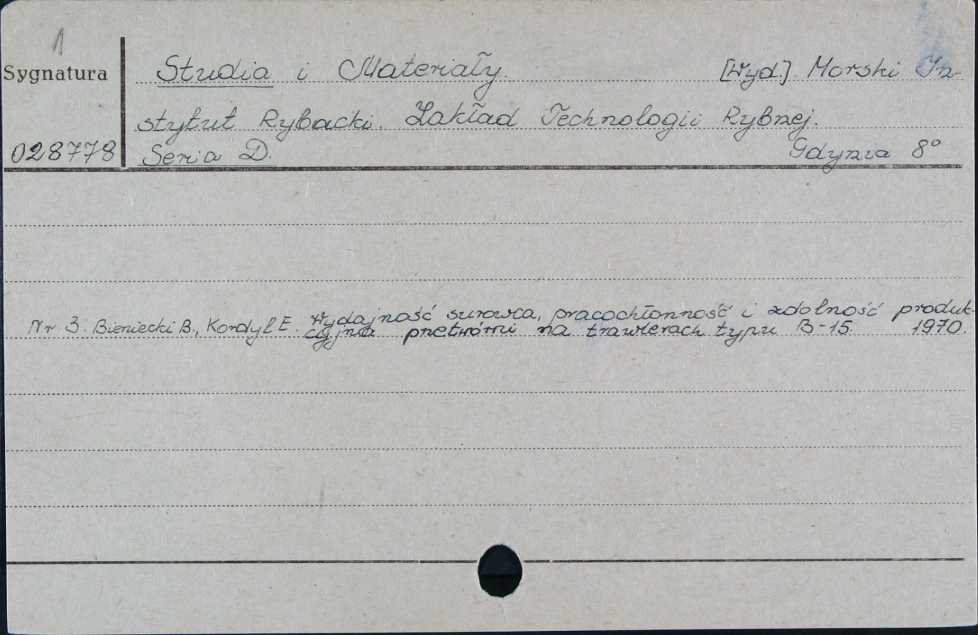 1
Sygnatura
Studia i Materiały. [Wyd.] Morski In-
stytut Rybacki. Zakład Technologii Rybnej.
028778 Seria D. Gdynia 8°
Nr 3. Bieniecki B., Kordyl E. Wydajność surowca, pracochłonność i zdolność produk-
cyjna przetwórni na trawlerach typu B-15. 1970.